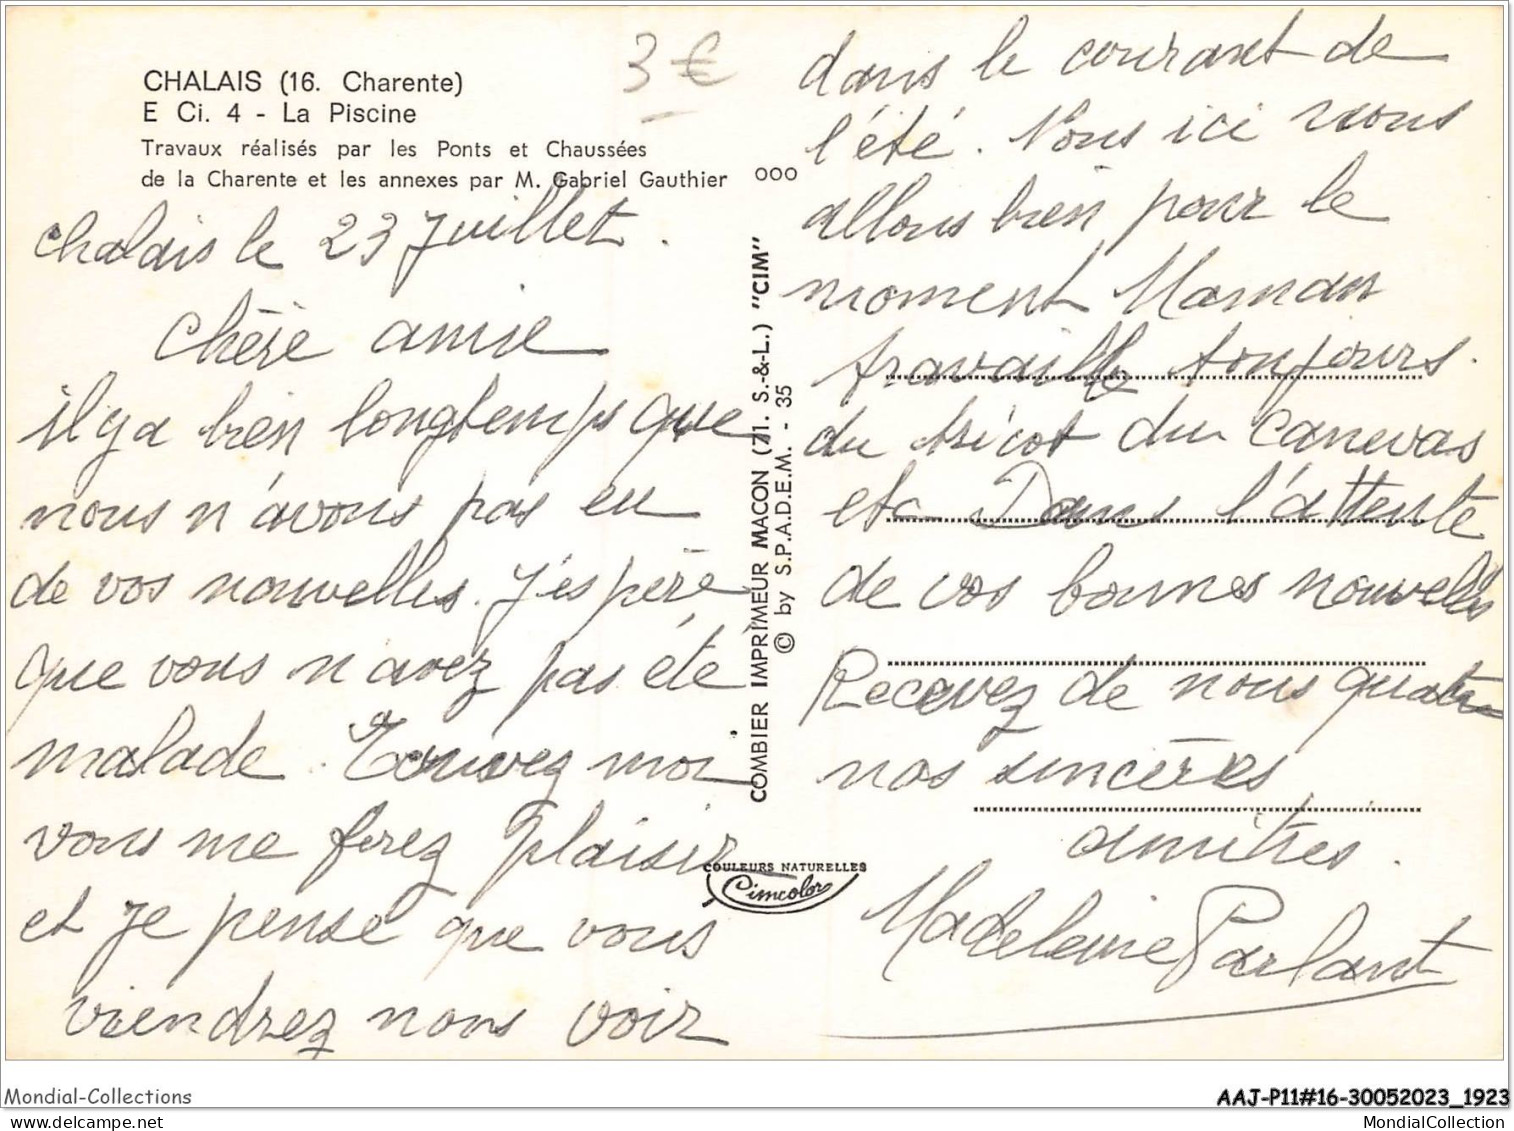 CHALAIS (16. Charente)
E Ci. 4 - La Piscine
Travaux réalisés par les Ponts et Chaussées
de la Charente et les annexes par M. Gabriel Gauthier
3 €
chalais le 23 Juillet.
Chère amie
il y a bien longtemps que
nous n'avons pas eu
de vos nouvelles. J'espère
que vous n'avez pas été
malade. Ecrivez moi
vous me ferez plaisir
et je pense que vous
viendrez nous voir
ooo
COMBIER IMPRIMEUR MACON (71. S.-&-L.) "CIM"
© by S.P.A.D.E.M. - 35
COULEURS NATURELLES
Cimcolor
dans le courant de
l'été. Nous ici nous
allons bien pour le
moment Maman
travaille toujours.
du tricot du canevas
etc Dans l'attente
de vos bonnes nouvelles
Recevez de nous quatre
nos sincères
amitiés.
Madeleine Parlant
Mondial-Collections
AAJ-P11#16-30052023_1923
MondialCollection